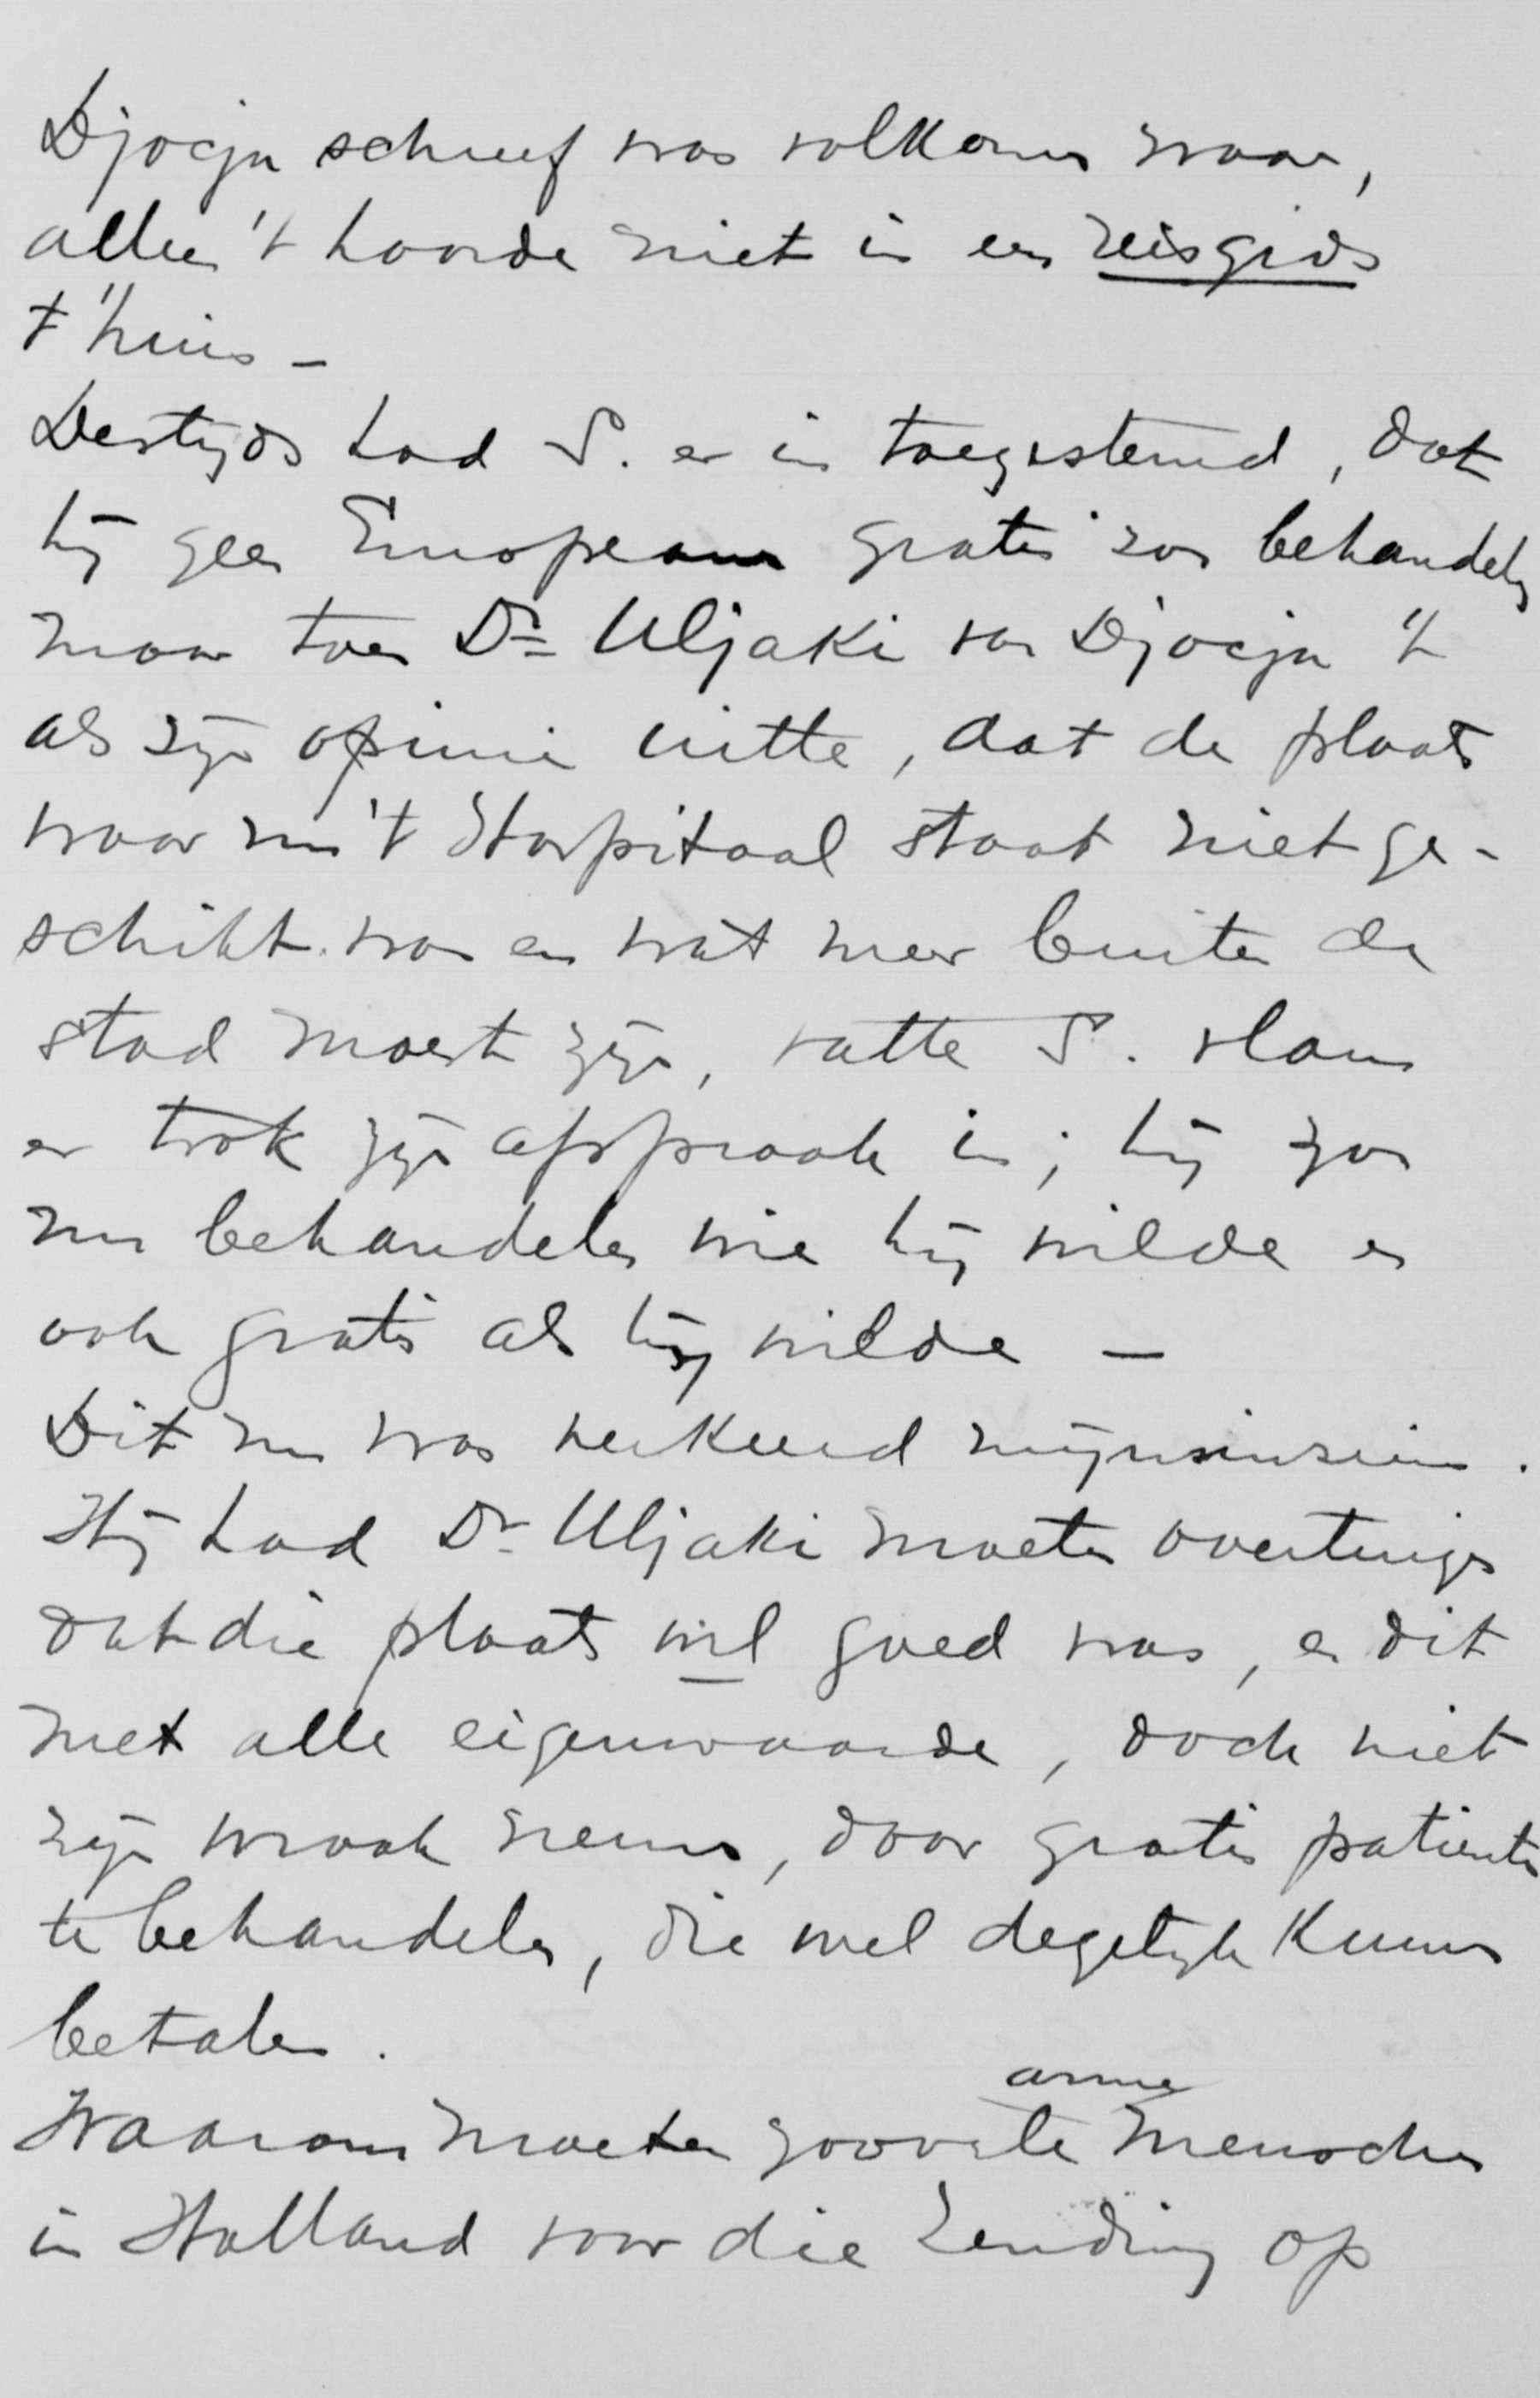 Djocja schreef was volkomen waar,
alleen 't hoorde niet in een reisgids
t'huis –
Destijds had S. er in toegestemd, dat
hij geen Europeanen gratis zou behandelen
maar toen Dr Uljaki van Djocja 't
als zijn opinie uitte, dat de plaats
waar nu 't Hospitaal staat niet ge-
schikt was en wat meer buiten de
stad moest zijn, vatte S. vlam
en trok zijn afspraak in; hij zou
nu behandelen wie hij wilde en
ook gratis als hij wilde –
Dit nu was verkeerd mijnsinziens.
Hij had Dr Uljaki moeten overtuigen
dat die plaats wel goed was, en dit
met alle eigenwaarde, doch niet
zijn wraak nemen, door gratis patienten
te behandelen, die wel degelijk kunnen
betalen.
Waarom moeten zoovele arme menschen
in Holland voor die Zending op